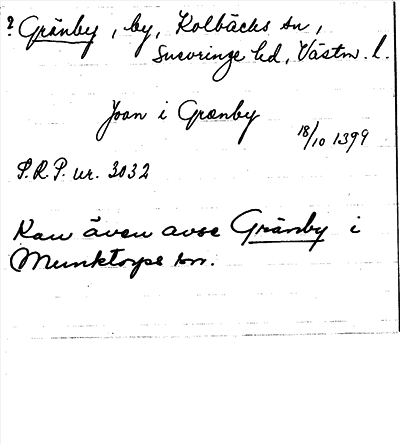 ? Gränby, by, Kolbäcks sn,
Snevringe hd, Västm. l.
Joan i Grænby
18/10 1399
S.R.P. nr. 3032
Kan även avse Gränby i
Munktorps sn.